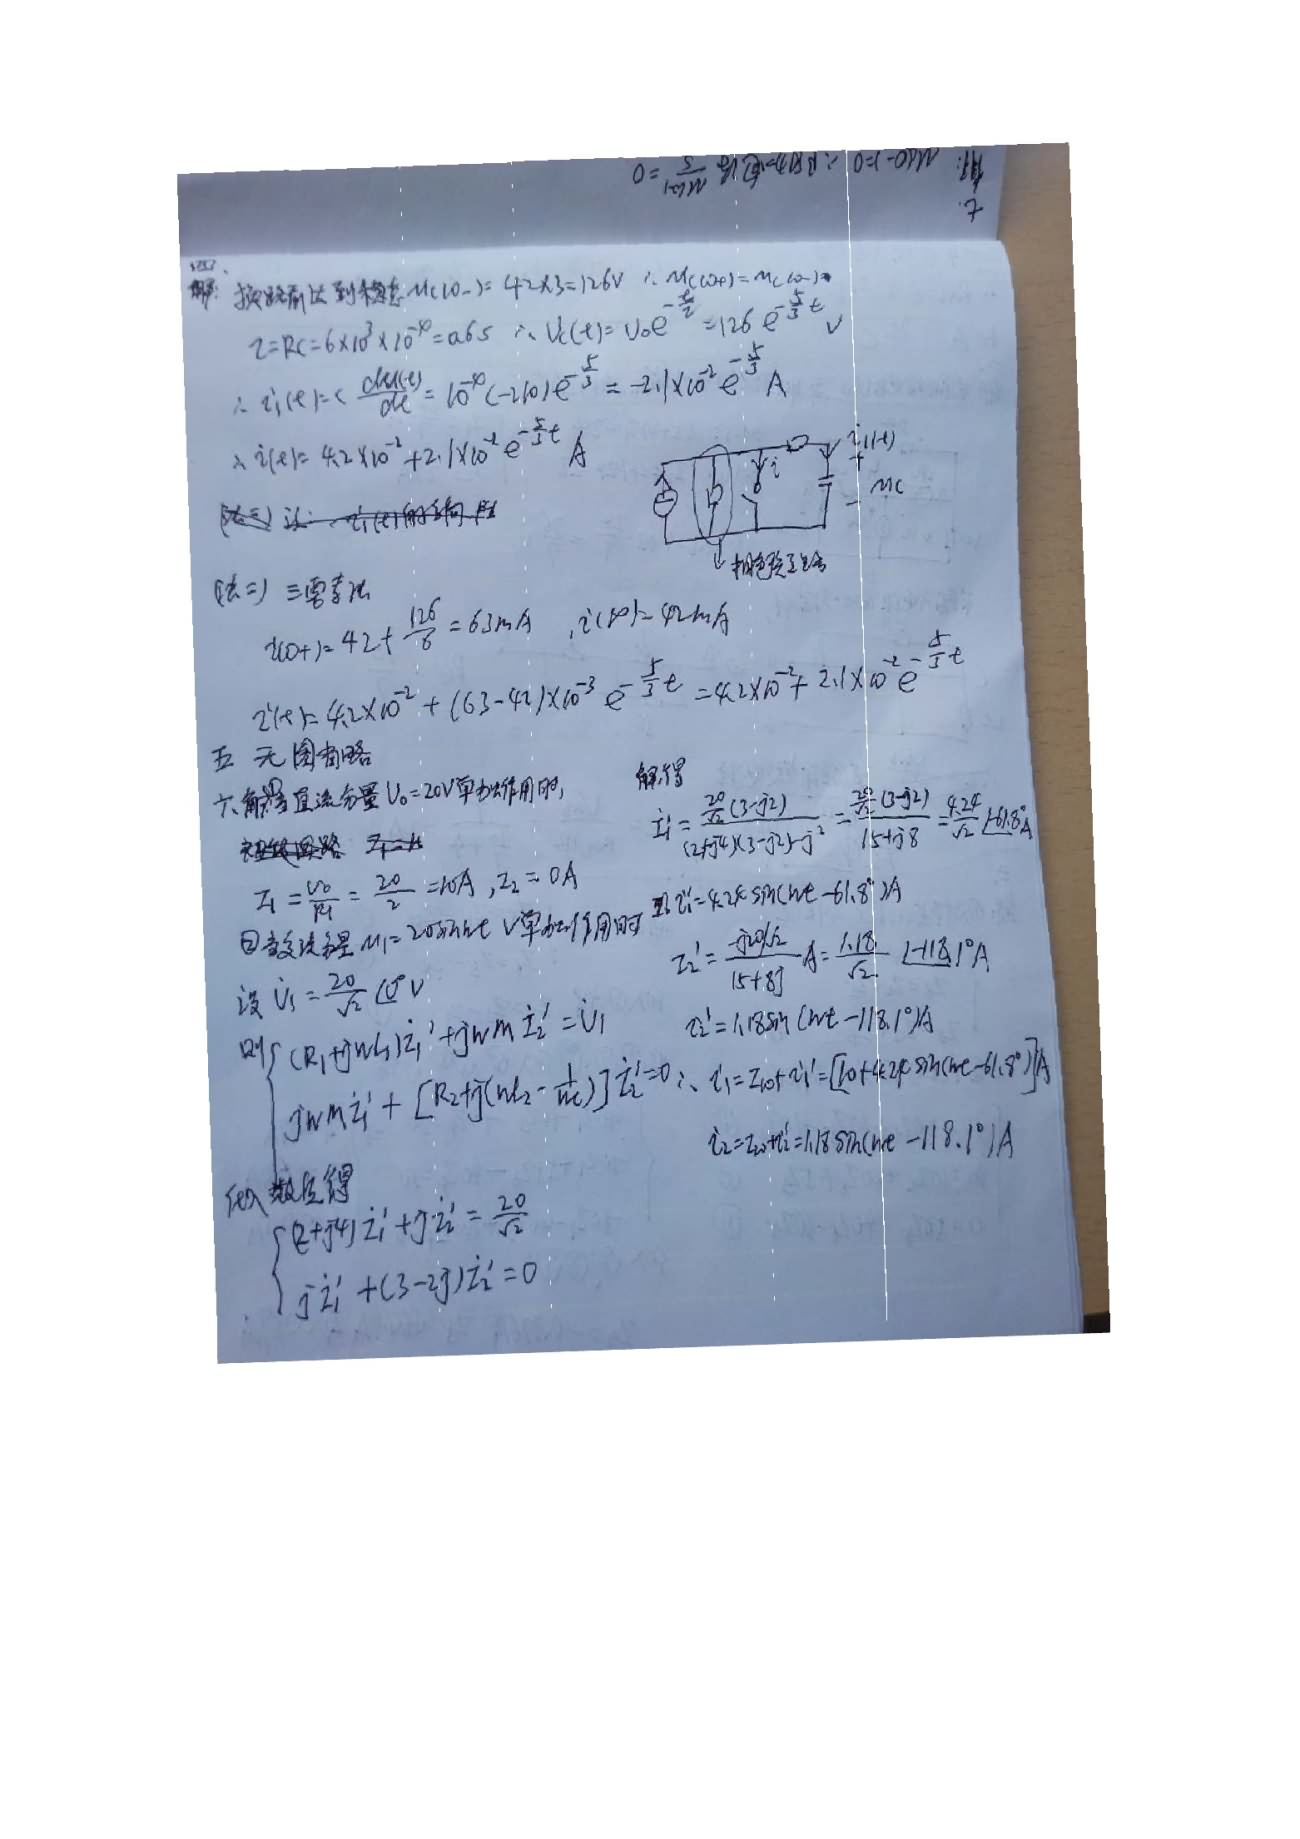 七.
解: u(0-)=0 ∴
=0
四.
解: 换路前达到稳态 uc(0-)=42×3=126V ∴ uc(0+)=uc(0-)
τ=RC=6×10³×10⁻⁴=0.6s ∴ Uc(t)=U₀e^{-t/τ}=126e^{-5/3 t} V
∴ i₁(t)=C du(t)/dt=10⁻⁴(-210)e^{-5/3}=-2.1×10⁻²e^{-5/3}A
∴ i(t)=4.2×10⁻²+2.1×10⁻²e^{-5/3 t} A
i
i₁(t)
+
uc
-
(法二) 三要素法
i(0+)=42+126/6=63mA , i(∞)=42mA
i(t)=4.2×10⁻²+(63-42)×10⁻³e^{-5/3 t}=4.2×10⁻²+2.1×10⁻²e^{-5/3 t}
五 无图省略
六 解: 当直流分量U₀=20V单独作用时,
I₁=U₀/R₁=20/2=10A, I₂=0A
当交流分量u₁=20sinwt V单独作用时
设 U̇₁=20/√2 ∠0° V
则{(R₁+jwL₁)İ₁'+jwmİ₂'=U̇₁
jwmİ₁'+[R₂+j(wL₂-1/wc)]İ₂'=0
代入数值得
{(2+j4)İ₁'+jİ₂'=20/√2
jİ₁'+(3-2j)İ₂'=0
解得
İ₁'=20/√2(3-j2)/(2+j4)(3-j2)-j²=20/√2(3-j2)/15+j8=4.24/√2∠-61.8°A
i₁'=4.24sin(wt-61.8°)A
I₂'=-j20/√2/15+8j A=1.18/√2 ∠-118.1°A
i₂'=1.18sin(wt-118.1°)A
∴ i₁=I₁₀+i₁'=[10+4.24sin(wt-61.8°)]A
i₂=I₂₀+i₂'=1.18sin(wt-118.1°)A